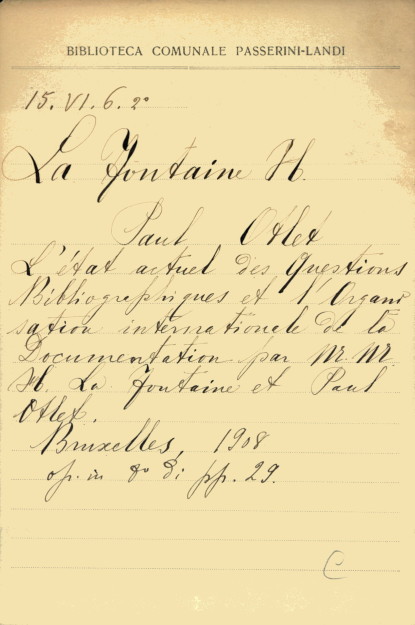 BIBLIOTECA COMUNALE PASSERINI-LANDI
15. VI. 6. 2º
La Fontaine H.
Paul Otlet
L'état actuel des Questions
Bibliographiques et l'Organi
sation internationale de la
Documentation par M. M.
H. La Fontaine et Paul
Otlet.
Bruxelles, 1908
op. in 8º di pp. 29.
C